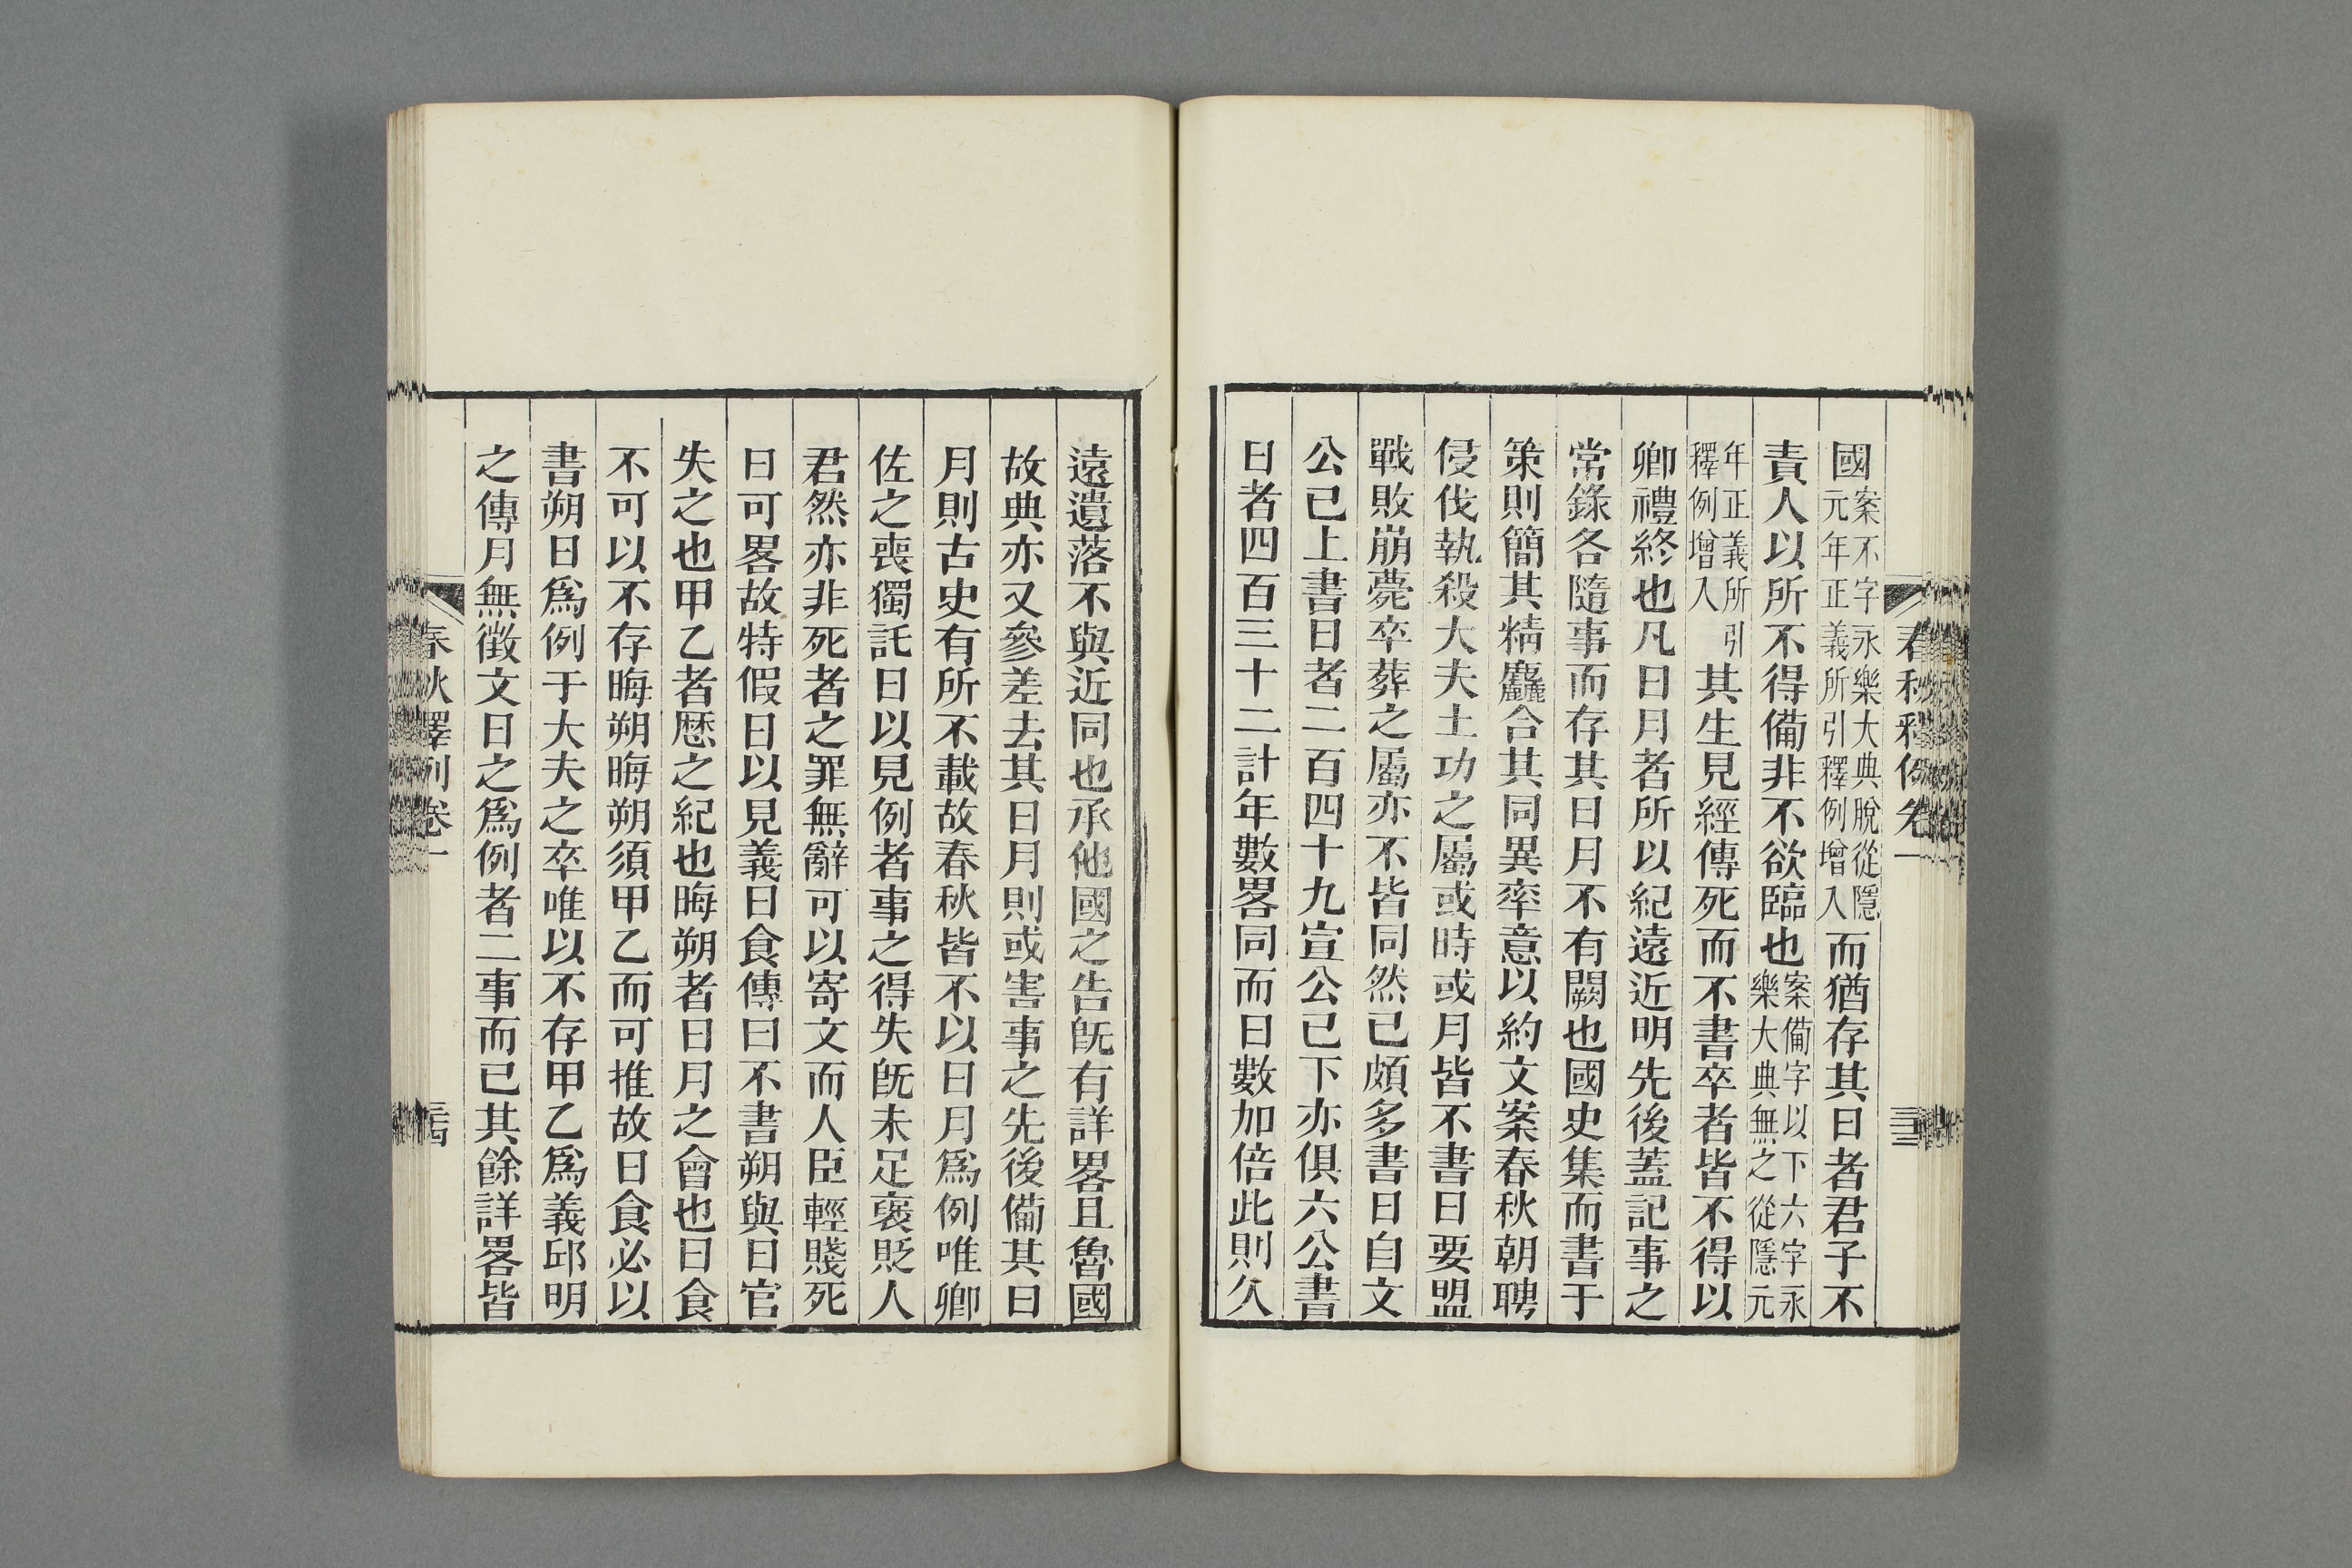 國案不字永樂大典脫從隱元年正義所引釋例增入而猶存其日者君子不
責人以所不得備非不欲臨也案備字以下六字永樂大典無之從隱元
年正義所引釋例增入其生見經傳死而不書卒者皆不得以
卿禮終也凡日月者所以紀遠近明先後蓋記事之
常錄各隨事而存其日月不有闕也國史集而書于
策則簡其精麤合其同異率意以約文案春秋朝聘
侵伐執殺大夫土功之屬或時或月皆不書日要盟
戰敗崩薨卒葬之屬亦不皆同然已頗多書日自文
公已上書日者二百四十九宣公已下亦俱六公書
日者四百三十二計年數畧同而日數加倍此則久
遠遺落不與近同也承他國之告旣有詳畧且魯國
故典亦又參差去其日月則或害事之先後備其日
月則古史有所不載故春秋皆不以日月爲例唯卿
佐之喪獨託日以見例者事之得失旣未足褒貶人
君然亦非死者之罪無辭可以寄文而人臣輕賤死
日可畧故特假日以見義日食傳曰不書朔與日官
失之也甲乙者歷之紀也晦朔者日月之會也日食
不可以不存晦朔晦朔須甲乙而可推故日食必以
書朔日爲例于大夫之卒唯以不存甲乙爲義邱明
之傳月無徵文日之爲例者二事而已其餘詳畧皆
春秋釋例卷一